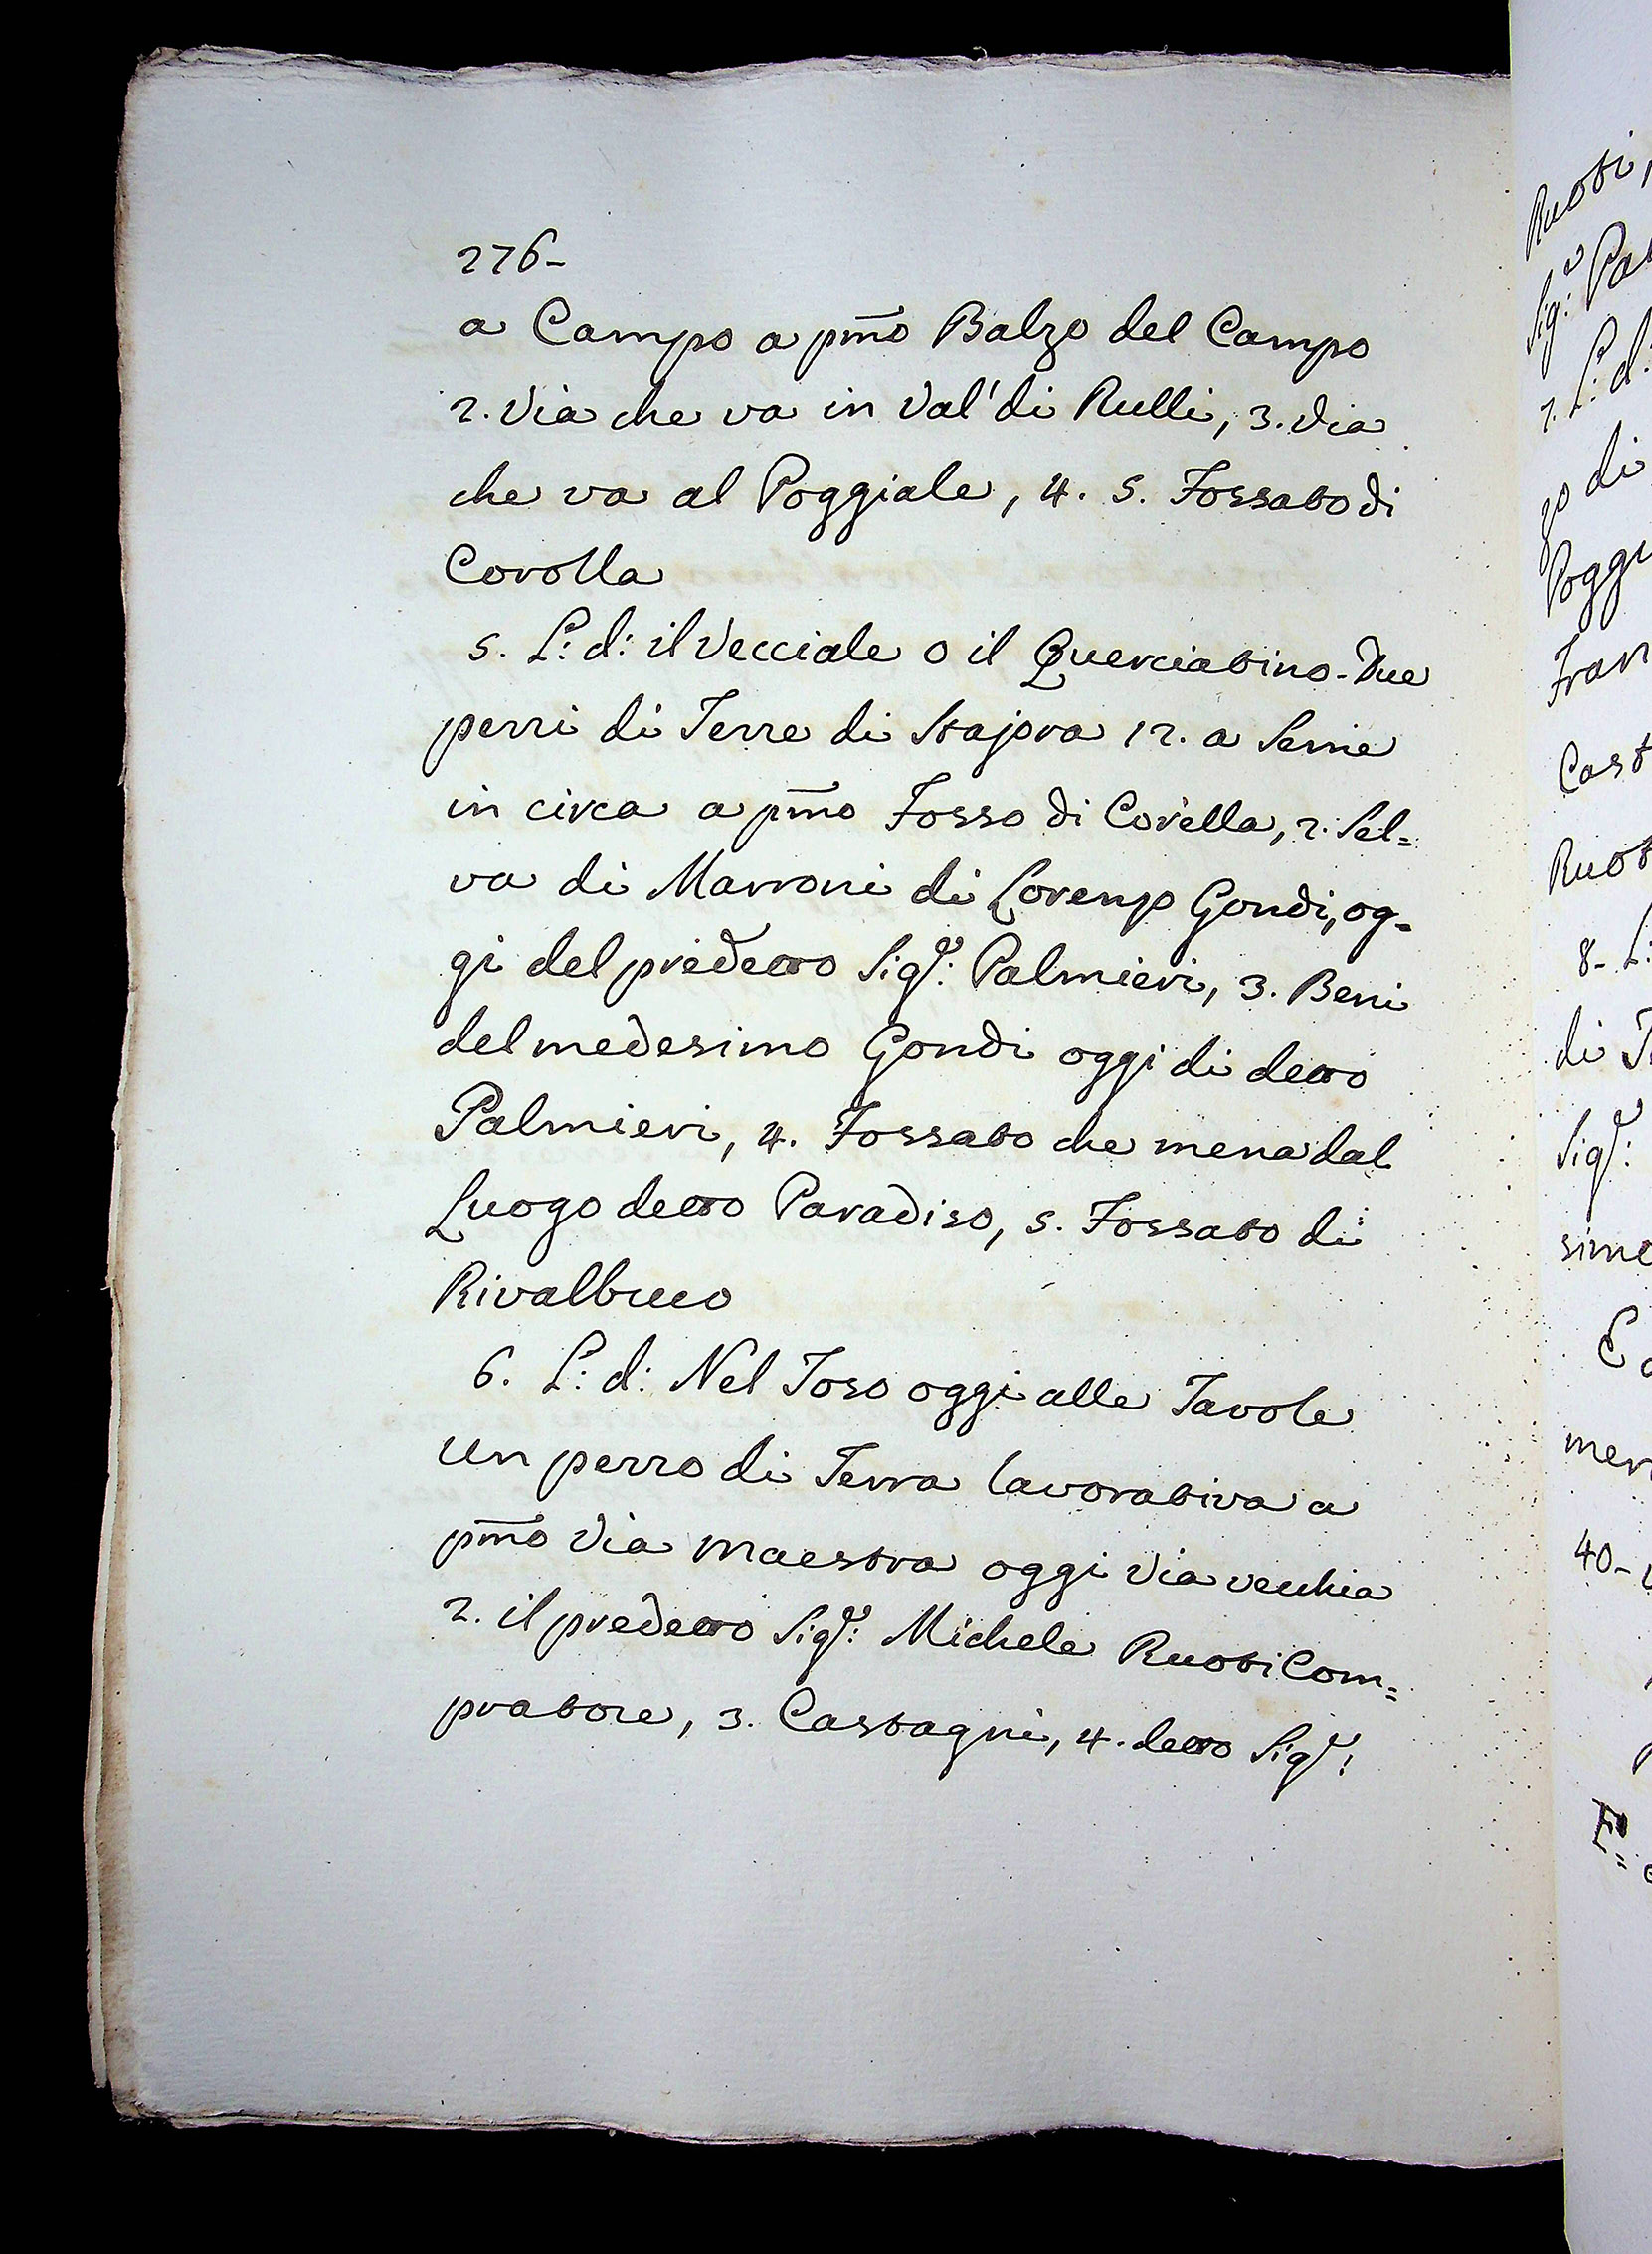 276-
a Campo a pm̄o Balzo del Campo
2. Via che va in Val' di Rulli, 3. Via
che va al Poggiale, 4. 5. Fossato di
Corolla
5. L: d: il Vecciale o il Querciatino - Due
pezzi di Terre di Stajora 12. a Seme
in circa a pm̄o Fosso di Corella, 2. Sel=
va di Marroni di Lorenzo Gondi, og=
gi del predetto Sig.r: Palmieri, 3. Beni
del medesimo Gondi oggi di detto
Palmieri, 4. Fossato che mena dal
Luogo detto Paradiso, 5. Fossato di
Rivalbuco
6. L: d: Nel Toso oggi alle Tavole
un pezzo di Terra lavorativa a
pm̄o Via maestra oggi Via vecchia
2. il predetto Sig.r: Michele Ruoti Com=
pratore, 3. Castagni, 4. detto Sig.r:
Ruoti,
Sig.r:
7. L: d:
zo di
Poggi
Fran
Cast
Ruot
8- L:
di
Sig.r:
sime
E
mer
40-